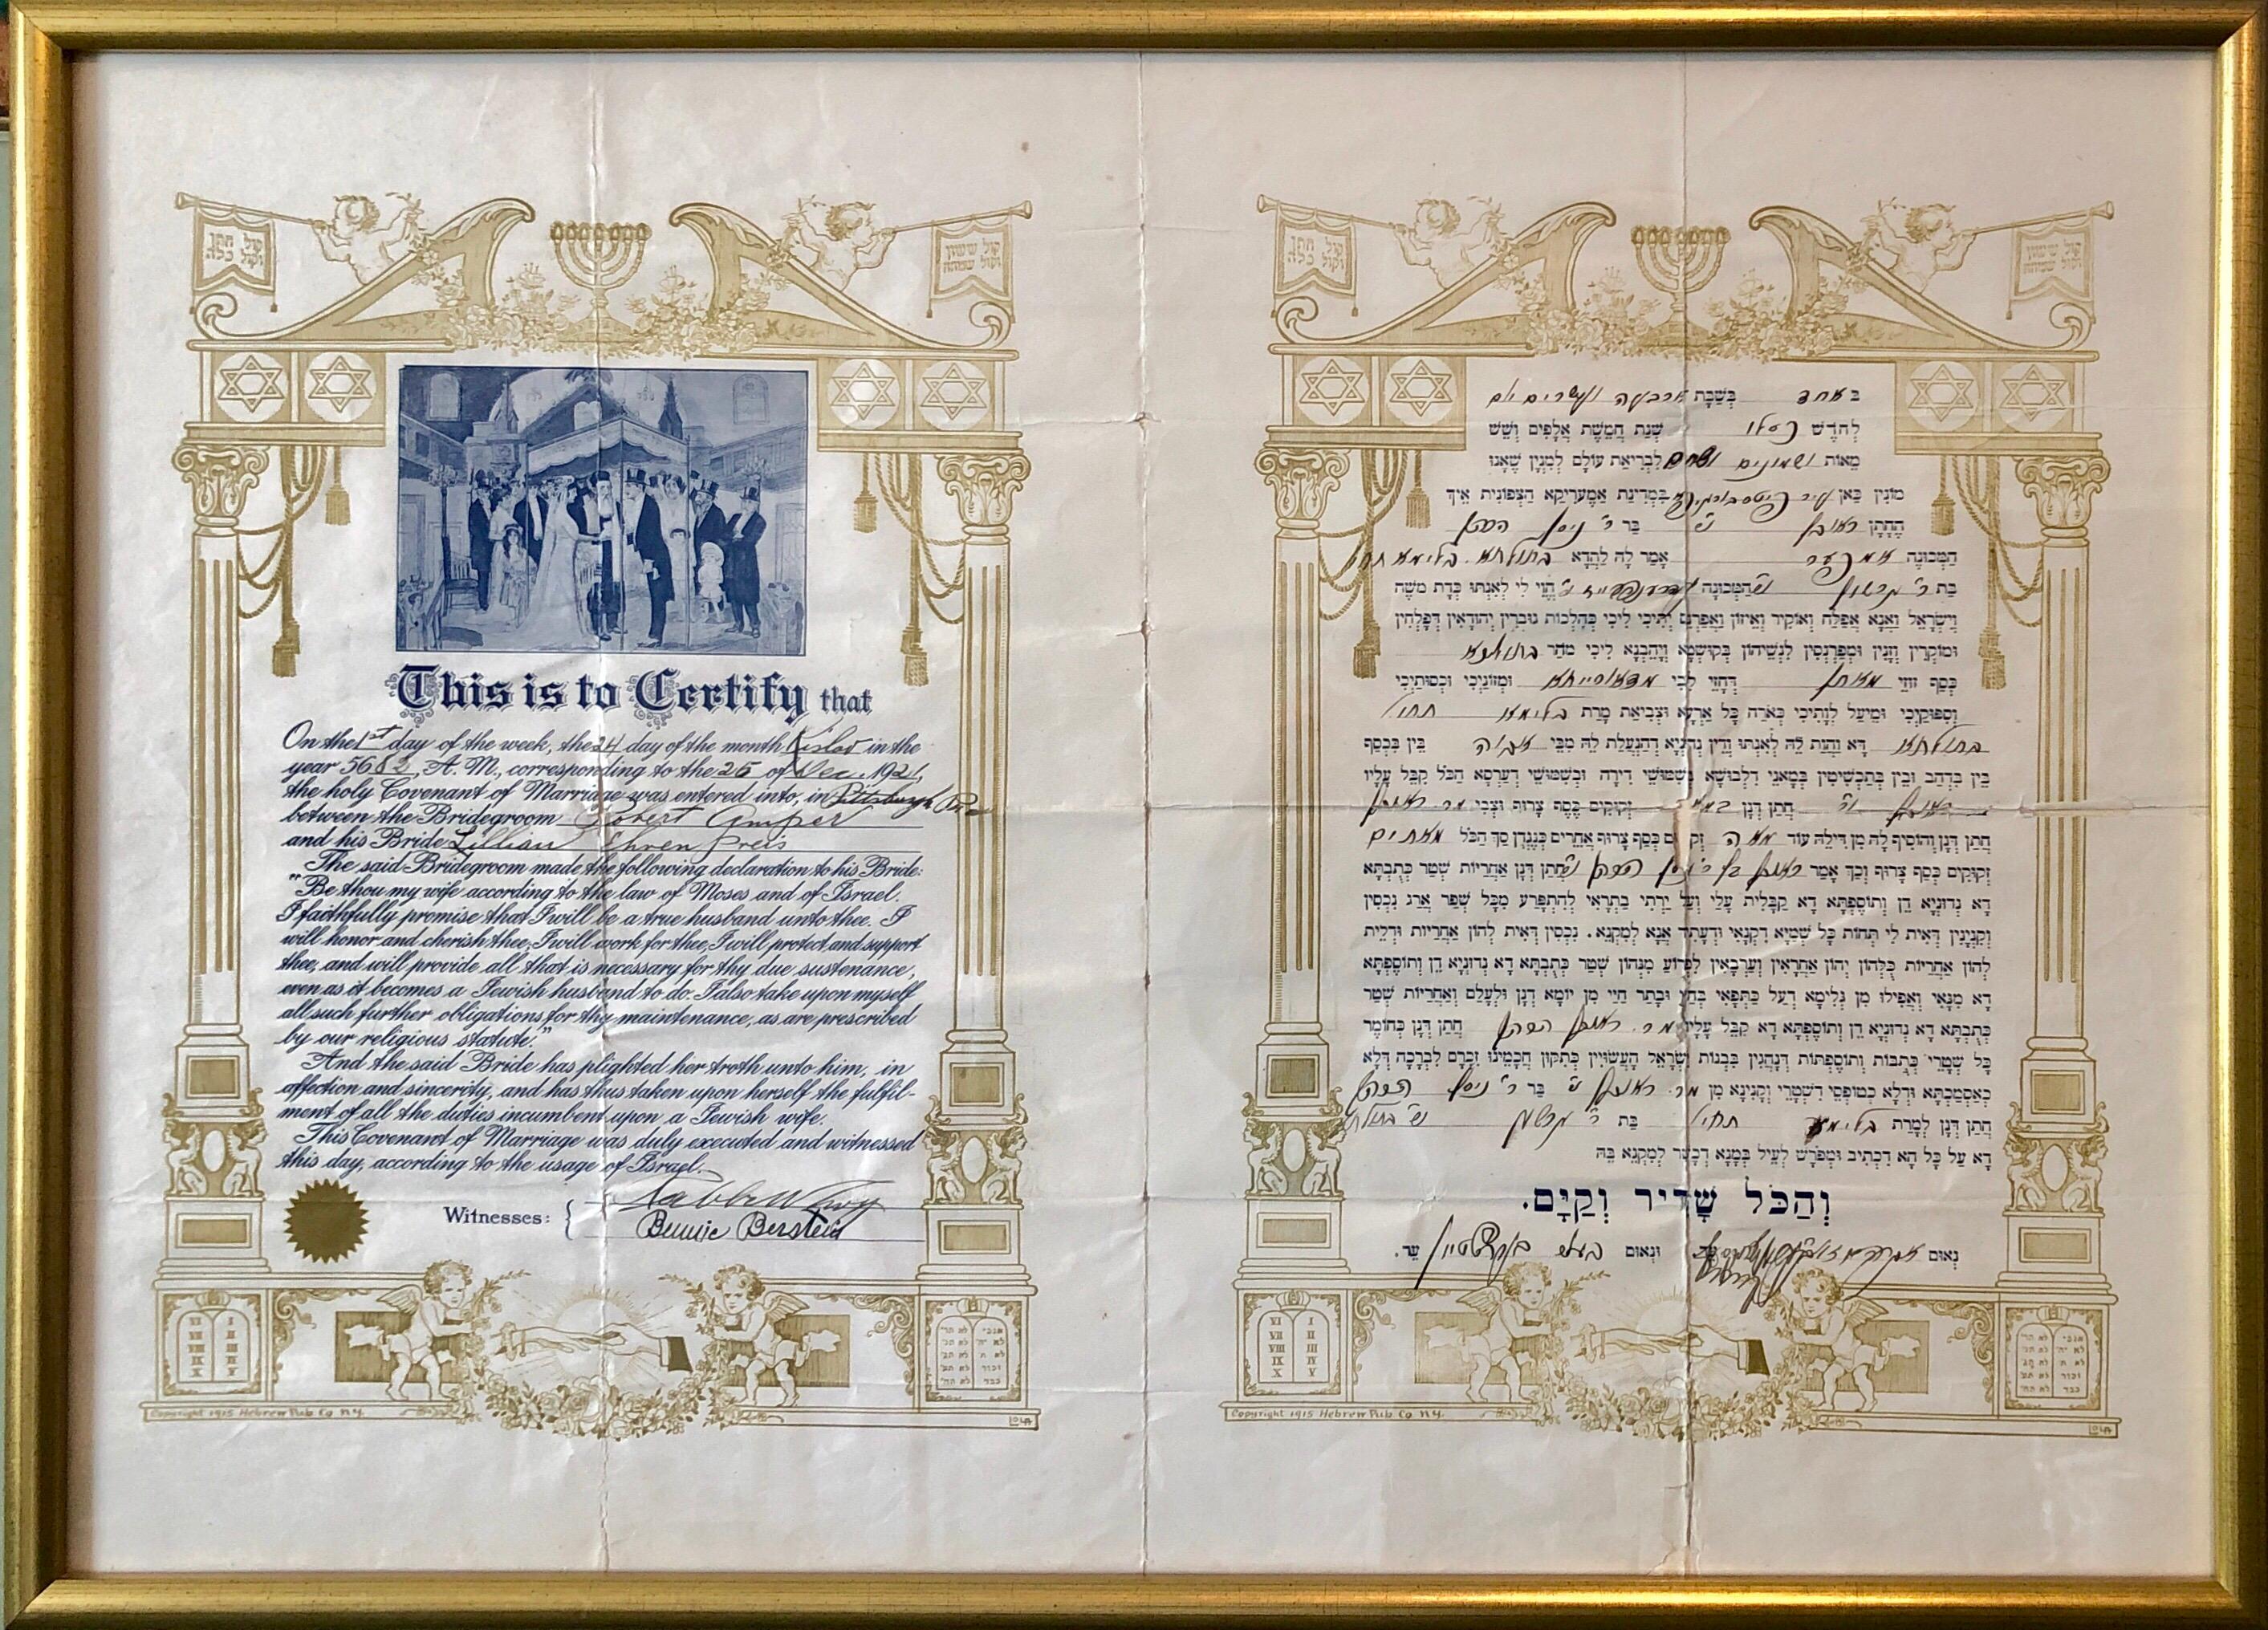 קול חתן
וקול כלה
קול ששון
וקול שמחה
This is to Certify that
On the 1st day of the week, the 24 day of the month Kislev in the
year 5682, A. M., corresponding to the 25 of Dec. 1921,
the holy Covenant of Marriage was entered into, in Pittsburgh
between the Bridegroom Robert Amper
and his Bride Lillian Ehren Preis
The said Bridegroom made the following declaration to his Bride:
"Be thou my wife according to the law of Moses and of Israel.
I faithfully promise that I will be a true husband unto thee. I
will honor and cherish thee; I will work for thee; I will protect and support
thee, and will provide all that is necessary for thy due sustenance,
even as it becomes a Jewish husband to do. I also take upon myself
all such further obligations for thy maintenance, as are prescribed
by our religious statute."
And the said Bride has plighted her troth unto him, in
affection and sincerity, and has thus taken upon herself the fulfil-
ment of all the duties incumbent upon a Jewish wife.
This Covenant of Marriage was duly executed and witnessed
this day, according to the usage of Israel.
Witnesses:
Bennie Berstein
VI I
VII II
VIII III
IX IV
X V
Copyright 1915 Hebrew Pub Co N.Y.
LOLA
קול חתן
וקול כלה
קול ששון
וקול שמחה
באחד בְּשַׁבָּת ארבעה ועשרים יום
לְחֹדֶשׁ כסלו שְׁנַת חֲמֵשֶׁת אֲלָפִים וְשֵׁשׁ
מֵאוֹת ושמונים ושתים לִבְרִיאַת עוֹלָם לְמִנְיָן שֶׁאָנוּ
מוֹנִין כַּאן עיר פיטסבורג בִּמְדִינַת אַמֶערִיקַא הַצְּפוֹנִית אֵיךְ
הֶחָתָן ראובן ני בַּר ר' ניסן הכהן
הַמְּכוּנֶה אמפער אָמַר לָהּ לַהֲדָא בתולתא בלימא
בַּת ר' גרשון הַמְּכוּנָה הֱוִי לִי לְאִנְתּוּ כְּדַת מֹשֶׁה
וְיִשְׂרָאֵל וַאֲנָא אֶפְלַח וְאוֹקִיר וְאֵיזוּן וַאֲפַרְנֵס יָתִיכִי לִיכִי כְּהִלְכוֹת גּוּבְרִין יְהוּדָאִין דְּפָלְחִין
וּמוֹקְרִין וְזָנִין וּמְפַרְנְסִין לִנְשֵׁיהוֹן בְּקוּשְׁטָא וְיָהֵבְנָא לִיכִי מֹהַר בתולתא
כְּסַף זוּזֵי מאתן דְּחָזֵי לִכִי מדאורייתא וּמְזוֹנַיְכִי וּכְסוּתַיְכִי
וְסִפּוּקַיְכִי וּמֵיעַל לְוָתֵיכִי כְּאֹרַח כָּל אַרְעָא וּצְבִיאַת מָרַת בלימא
בתולתא דָא וַהֲוַת לֵהּ לְאִנְתּוּ וְדֵין נְדוּנְיָא דְּהַנְעֲלַת לֵהּ מִבֵּי אביה בֵּין בִּכְסַף
בֵּין בִּדְהַב וּבֵין בְּתַכְשִׁיטִין בְּמָאנֵי דִלְבוּשָׁא בְּשִׁמּוּשֵׁי דִירָה וּבְשִׁמּוּשֵׁי דְעַרְסָא הַכֹּל קִבֵּל עָלָיו
ראובן חֲתַן דְּנָן במאה זְקוּקִים כֶּסֶף צָרוּף וּצְבִי מר ראובן
חֲתַן דְּנָן וְהוֹסִיף לָהּ מִן דִּילֵהּ עוֹד מאה זְקוּקִים כֶּסֶף צָרוּף אֲחֵרִים כְּנֶגְדָּן סַךְ הַכֹּל מאתים
זְקוּקִים כֶּסֶף צָרוּף וְכָךְ אָמַר ראובן בן ר' ניסן הכהן חֲתַן דְּנָן אַחֲרָיוּת שְׁטַר כְּתֻבְּתָא
דָא נְדוּנְיָא דֵן וְתוֹסֶפְתָּא דָא קַבָּלִית עָלַי וְעַל יָרְתַי בַּתְרָאִי לְהִתְפָּרַע מִכָּל שְׁפַר אֲרַג נִכְסִין
וְקִנְיָנִין דְּאִית לִי תְּחוֹת כָּל שְׁמַיָּא דִקְנָאִי וּדְעָתִד אֲנָא לְמִקְנֵא. נִכְסִין דְּאִית לְהוֹן אַחֲרָיוּת וּדְלֵית
לְהוֹן אַחֲרָיוּת כֻּלְּהוֹן יְהוֹן אַחְרָאִין וְעַרְבָאִין לִפְרוֹעַ מִנְּהוֹן שְׁטַר כְּתֻבְּתָא דָא נְדוּנְיָא דֵן וְתוֹסֶפְתָּא
דָא מִנַּאי וַאֲפִילוּ מִן גְּלִימָא דְעַל כַּתְפָּאִי בְּחַיַּי וּבָתַר חַיַּי מִן יוֹמָא דְנָן וּלְעָלַם וְאַחֲרָיוּת שְׁטַר
כְּתֻבְּתָא דָא נְדוּנְיָא דֵן וְתוֹסֶפְתָּא דָא קִבֵּל עָלָיו מר ראובן הכהן חֲתַן דְּנָן כְּחוֹמֶר
כָּל שְׁטָרֵי כְּתֻבּוֹת וְתוֹסֶפְתּוֹת דְּנָהֲגִין בִּבְנוֹת יִשְׂרָאֵל הָעֲשׂוּיִין כְּתִקּוּן חֲכָמֵינוּ זִכְרָם לִבְרָכָה דְּלָא
כְּאַסְמַכְתָּא וּדְלָא כְּטוֹפְסֵי דִשְׁטָרֵי וְקָנִינָא מִן מר ראובן ני בַּר ר' ניסן הכהן
חֲתַן דְּנָן לְמָרַת בלימא בַּת ר' גרשון
דָא עַל כָּל הָא דִּכְתִיב וּמְפֹרָשׁ לְעֵיל בְּמָנָא דְכָשֵׁר לְמִקְנֵא בֵהּ
וְהַכֹּל שָׁרִיר וְקַיָּם.
נְאוּם אברהם עֵד וּנְאוּם עֵד.
VI I
VII II
VIII III
IX IV
X V
Copyright 1915 Hebrew Pub Co N.Y.
LOLA